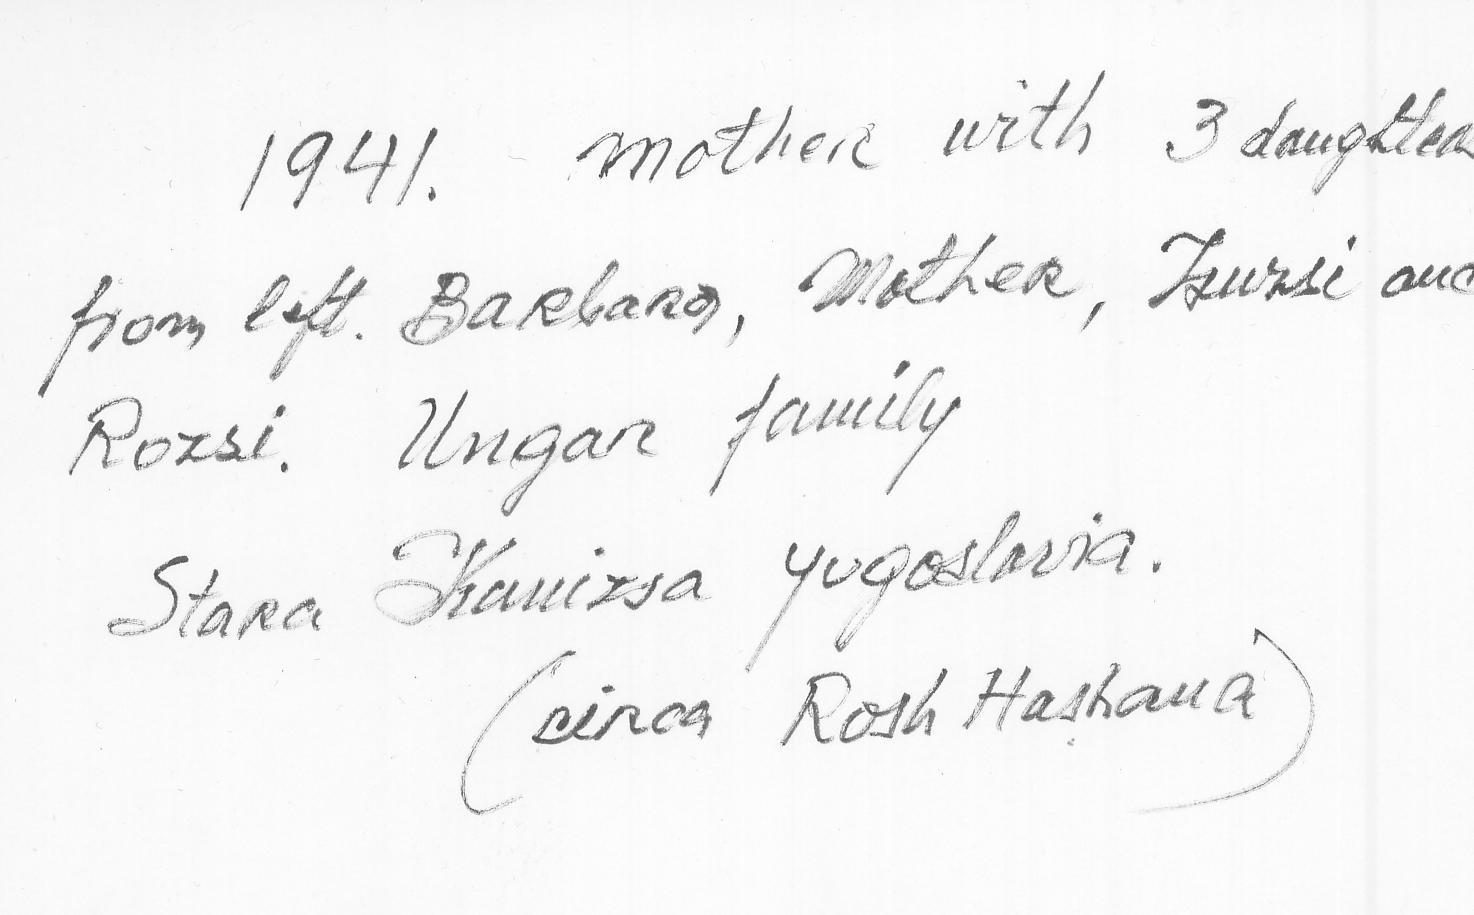 1941. Mother with 3 daughters
from left. Barbara, Mother, Zsuzsi and
Rozsi. Ungar family
Stara Kanizsa Yugoslavia.
(circa Rosh Hashana)